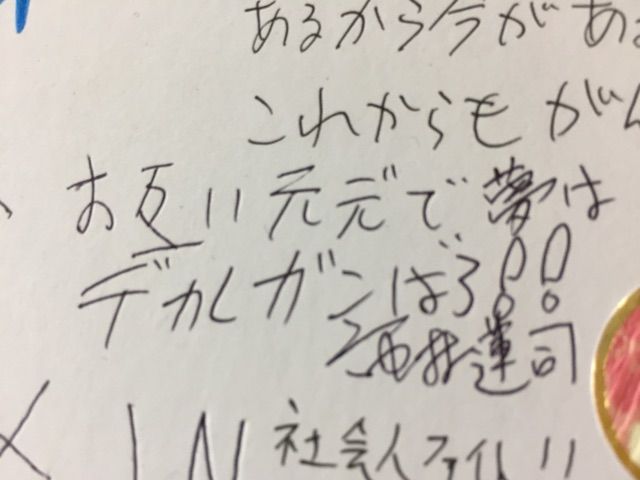 あるから今がある
これからもがん
お互い元デで夢は
デカくガンばろ!!
酒井蓮司
社会人ファイト!!